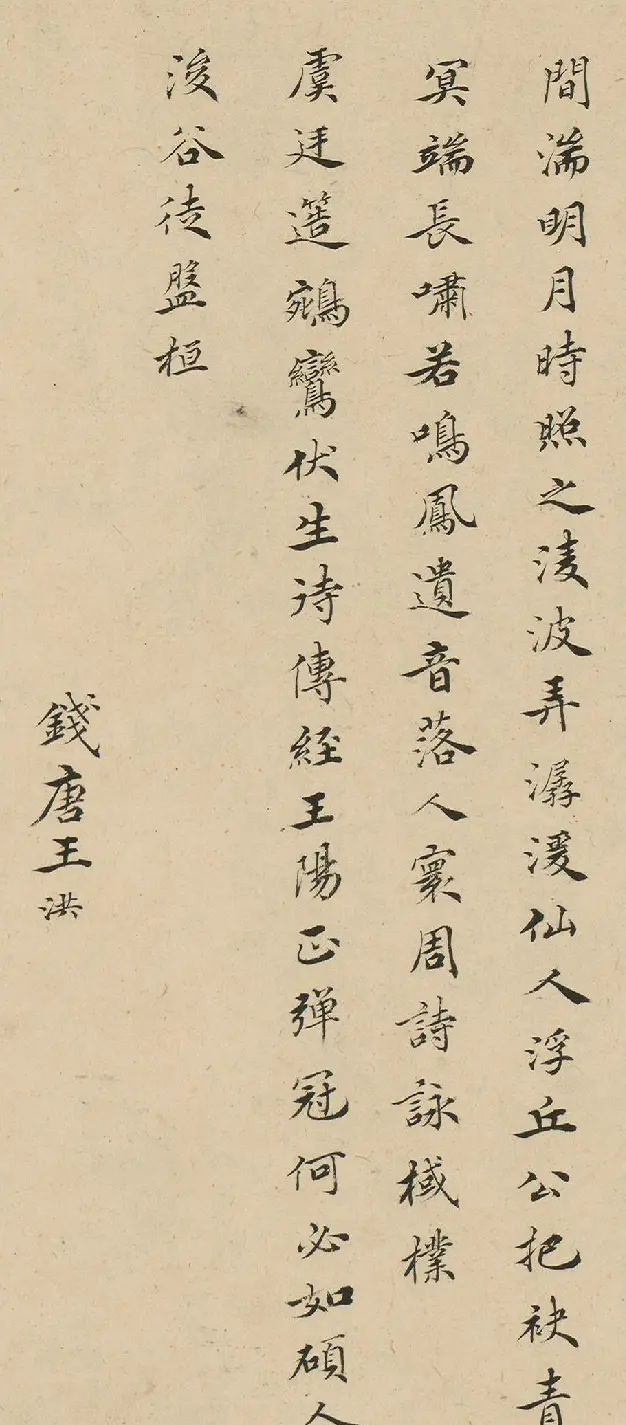 間湍明月時照之淩波弄潺湲仙人浮丘公把袂青
冥端長嘯若鳴鳳遺音落人寰周詩詠棫樸
虞廷選鵷鸞伏生待傳經王陽正彈冠何必如碩人
浚谷徒盤桓
錢唐王洪